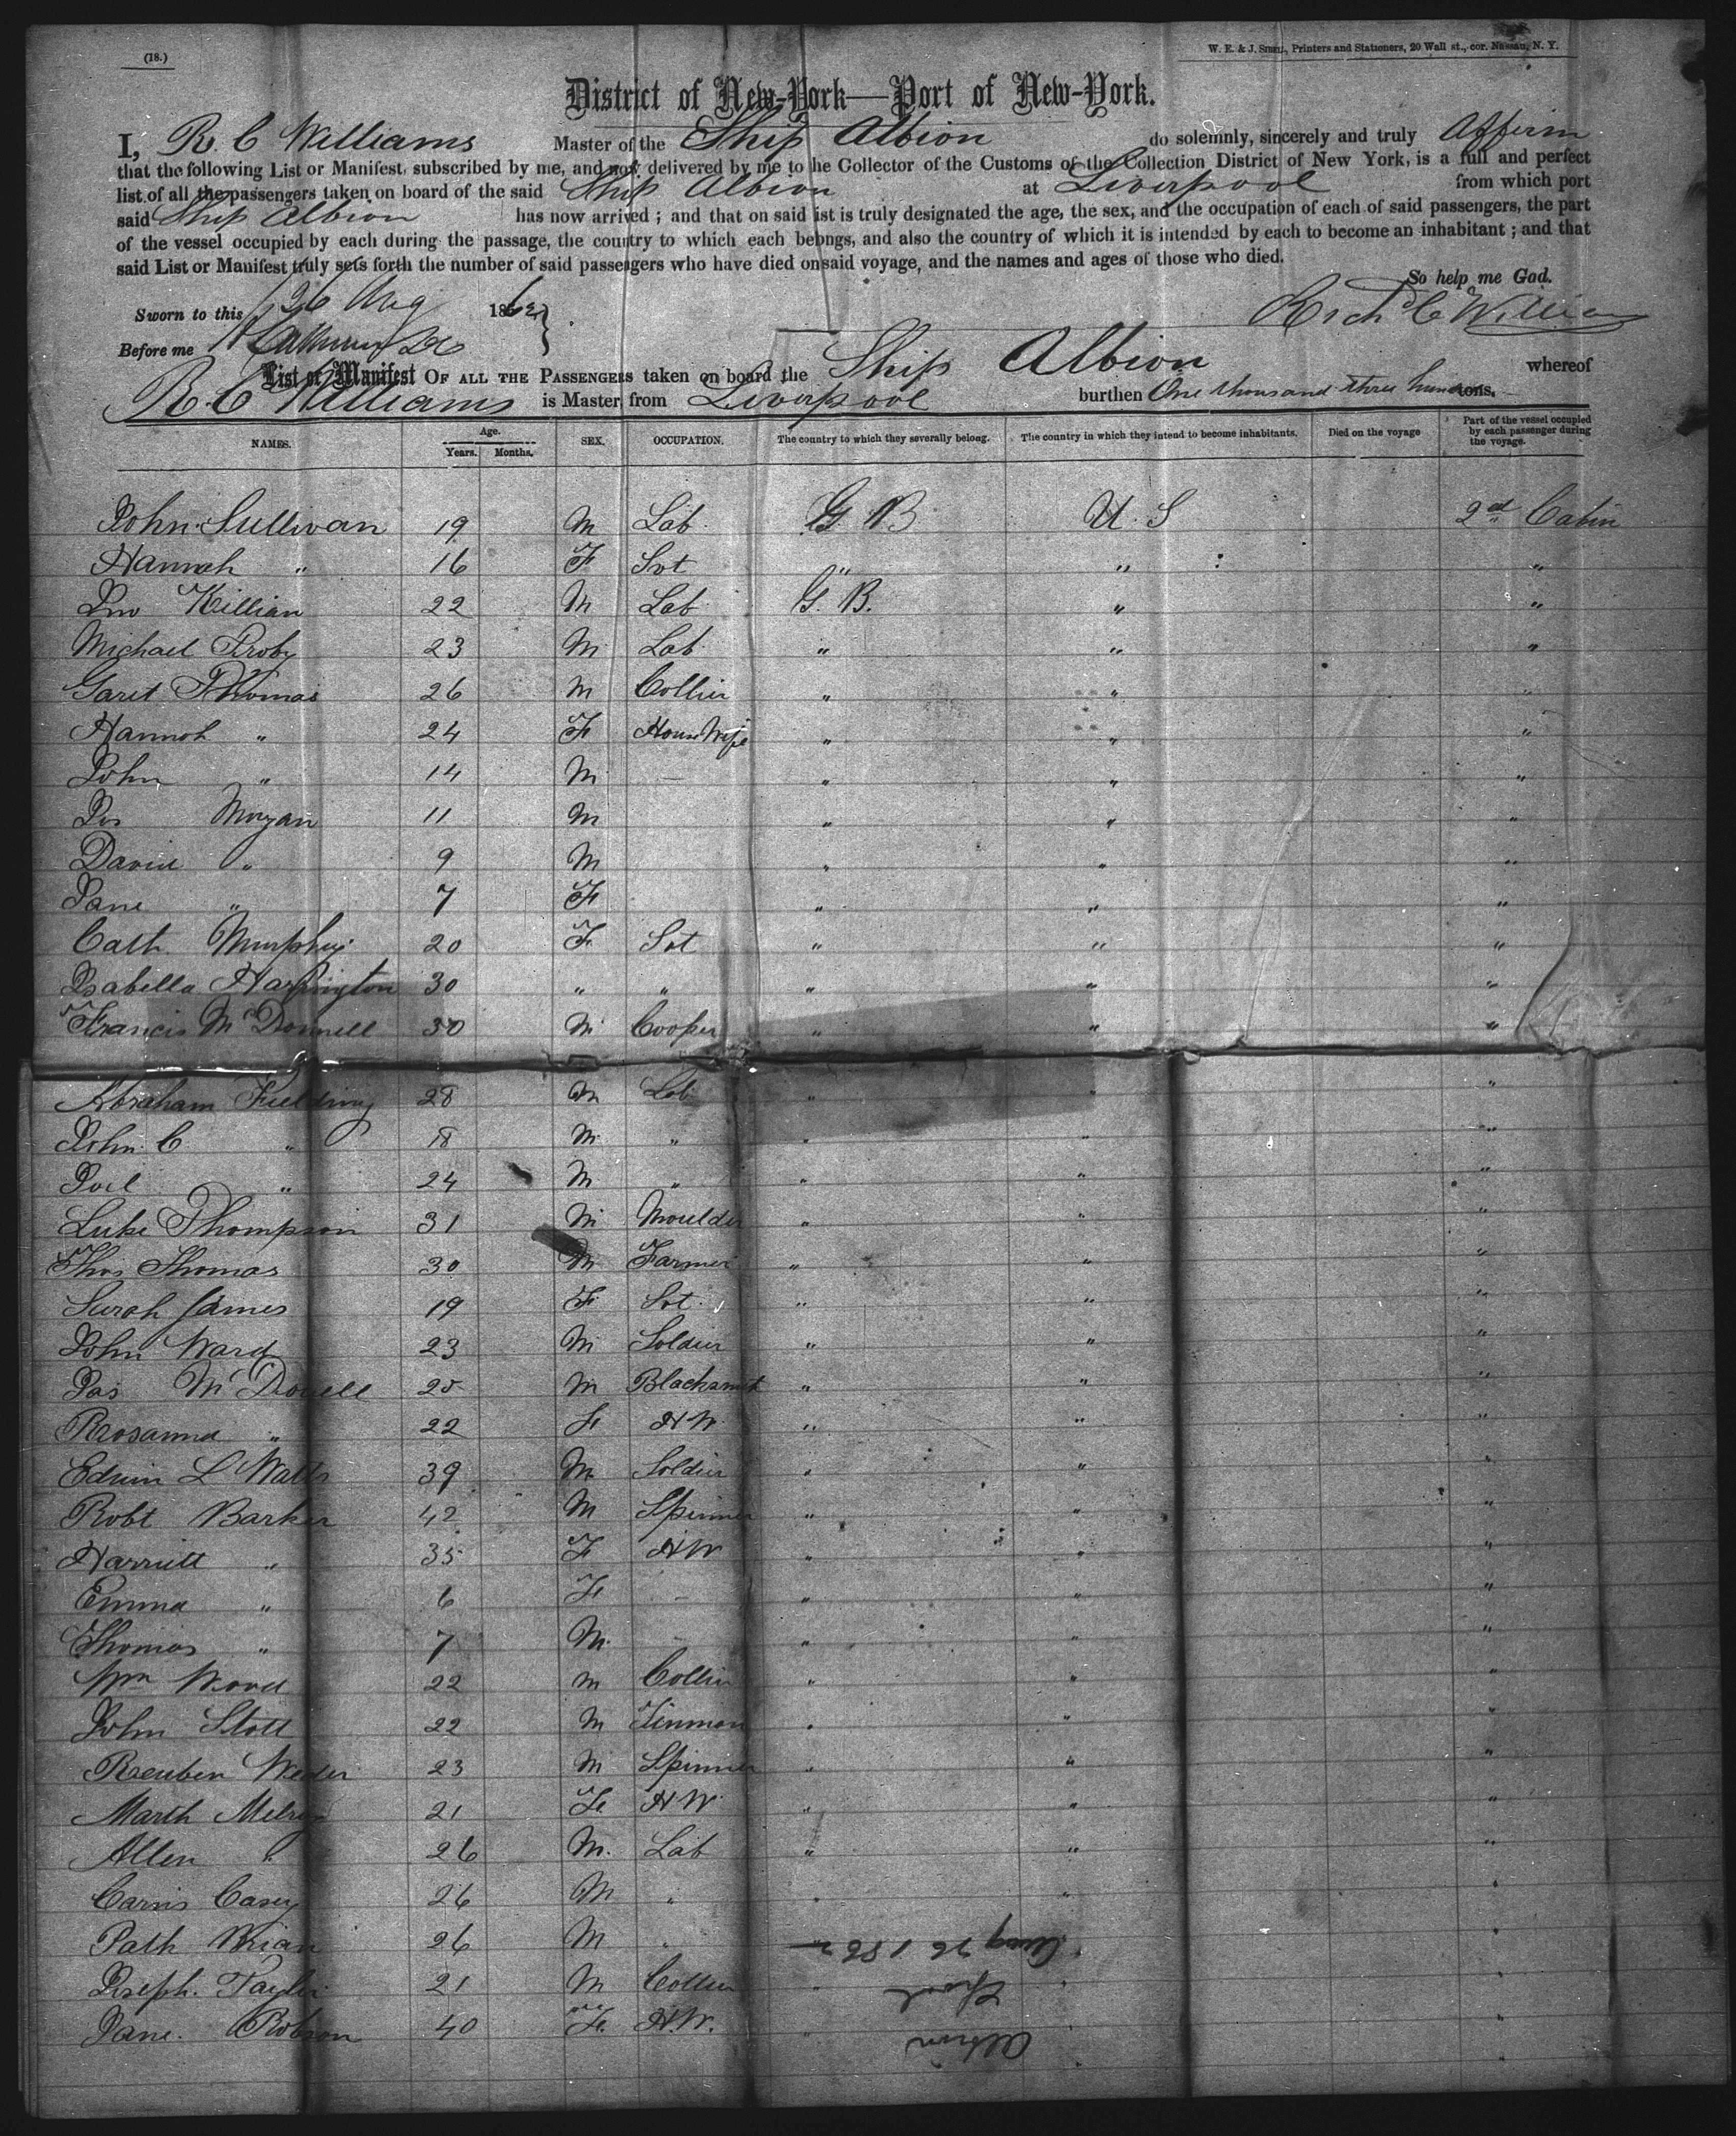 (18.)
W. E. & J. Sibell, Printers and Stationers, 20 Wall st., cor. Nassau, N. Y.
District of New-York—Port of New-York.
I, R. C Williams Master of the Ship Albion do solemnly, sincerely and truly Affirm
that the following List or Manifest, subscribed by me, and now delivered by me to he Collector of the Customs of the Collection District of New York, is a full and perfect
list of all the passengers taken on board of the said Ship Albion at Liverpool from which port
said Ship Albion has now arrived ; and that on said ist is truly designated the age, the sex, and the occupation of each of said passengers, the part
of the vessel occupied by each during the passage, the country to which each belongs, and also the country of which it is intended by each to become an inhabitant ; and that
said List or Manifest truly sets forth the number of said passengers who have died on said voyage, and the names and ages of those who died.
So help me God.
Sworn to this 26 Aug 1862
Richd C Williams
Before me
List or Manifest OF ALL THE PASSENGERS taken on board the Ship Albion whereof
R. C Williams is Master, from Liverpool burthen One thousand three hun tons.
NAMES. Age. Years. Months. SEX. OCCUPATION. The country to which they severally belong. The country in which they intend to become inhabitants. Died on the voyage Part of the vessel occupied by each passenger during the voyage.
John Sullivan 19 M Lab G B U. S 2nd Cabin
Hannah " 16 F Svt " " "
Jno Killian 22 M Lab G. B. " "
Michael Proby 23 M Lab " " "
Garet Thomas 26 M Collier " " "
Hannah " 24 F House Wife " " "
John " 14 M — " " "
Jos Morgan 11 M " " "
David " 9 M " " "
Jane " 7 F " " "
Cath. Murphy 20 F Svt " " "
Isabella Harrington 30 " " " " "
Francis McDonnell 30 M Cooper " " "
Abraham Fielding 28 M Lab " " "
John C " 18 M " " " "
Joel " 24 M " " " "
Luke Thompson 31 M Moulder " " "
Thos Thomas 30 M Farmer " " "
Sarah James 19 F Svt. " " "
John Ward 23 M Soldier " " "
Jas McDonell 25 M Blacksmit " " "
Rosanna " 22 F HW " " "
Edwin L Watts 39 M Soldier " " "
Robt Barker 42 M Spinner " " "
Harriett " 35 F HW " " "
Emma " 6 F - " " "
Thomas " 7 M. - " " "
Wm Wood 22 M Collier " " "
John Stott 22 M Tinman " " "
Reuben 23 M Spinner " " "
Marth 21 Fe HW " " "
Allen " 26 M. Lab " " "
Casey 26 M " " " "
Path Brian 26 M " " " "
Joseph. Taylor 21 M Collier " " "
Jane. Robson 40 Fe. H.W. " " "
Albion
Aug 26 1862